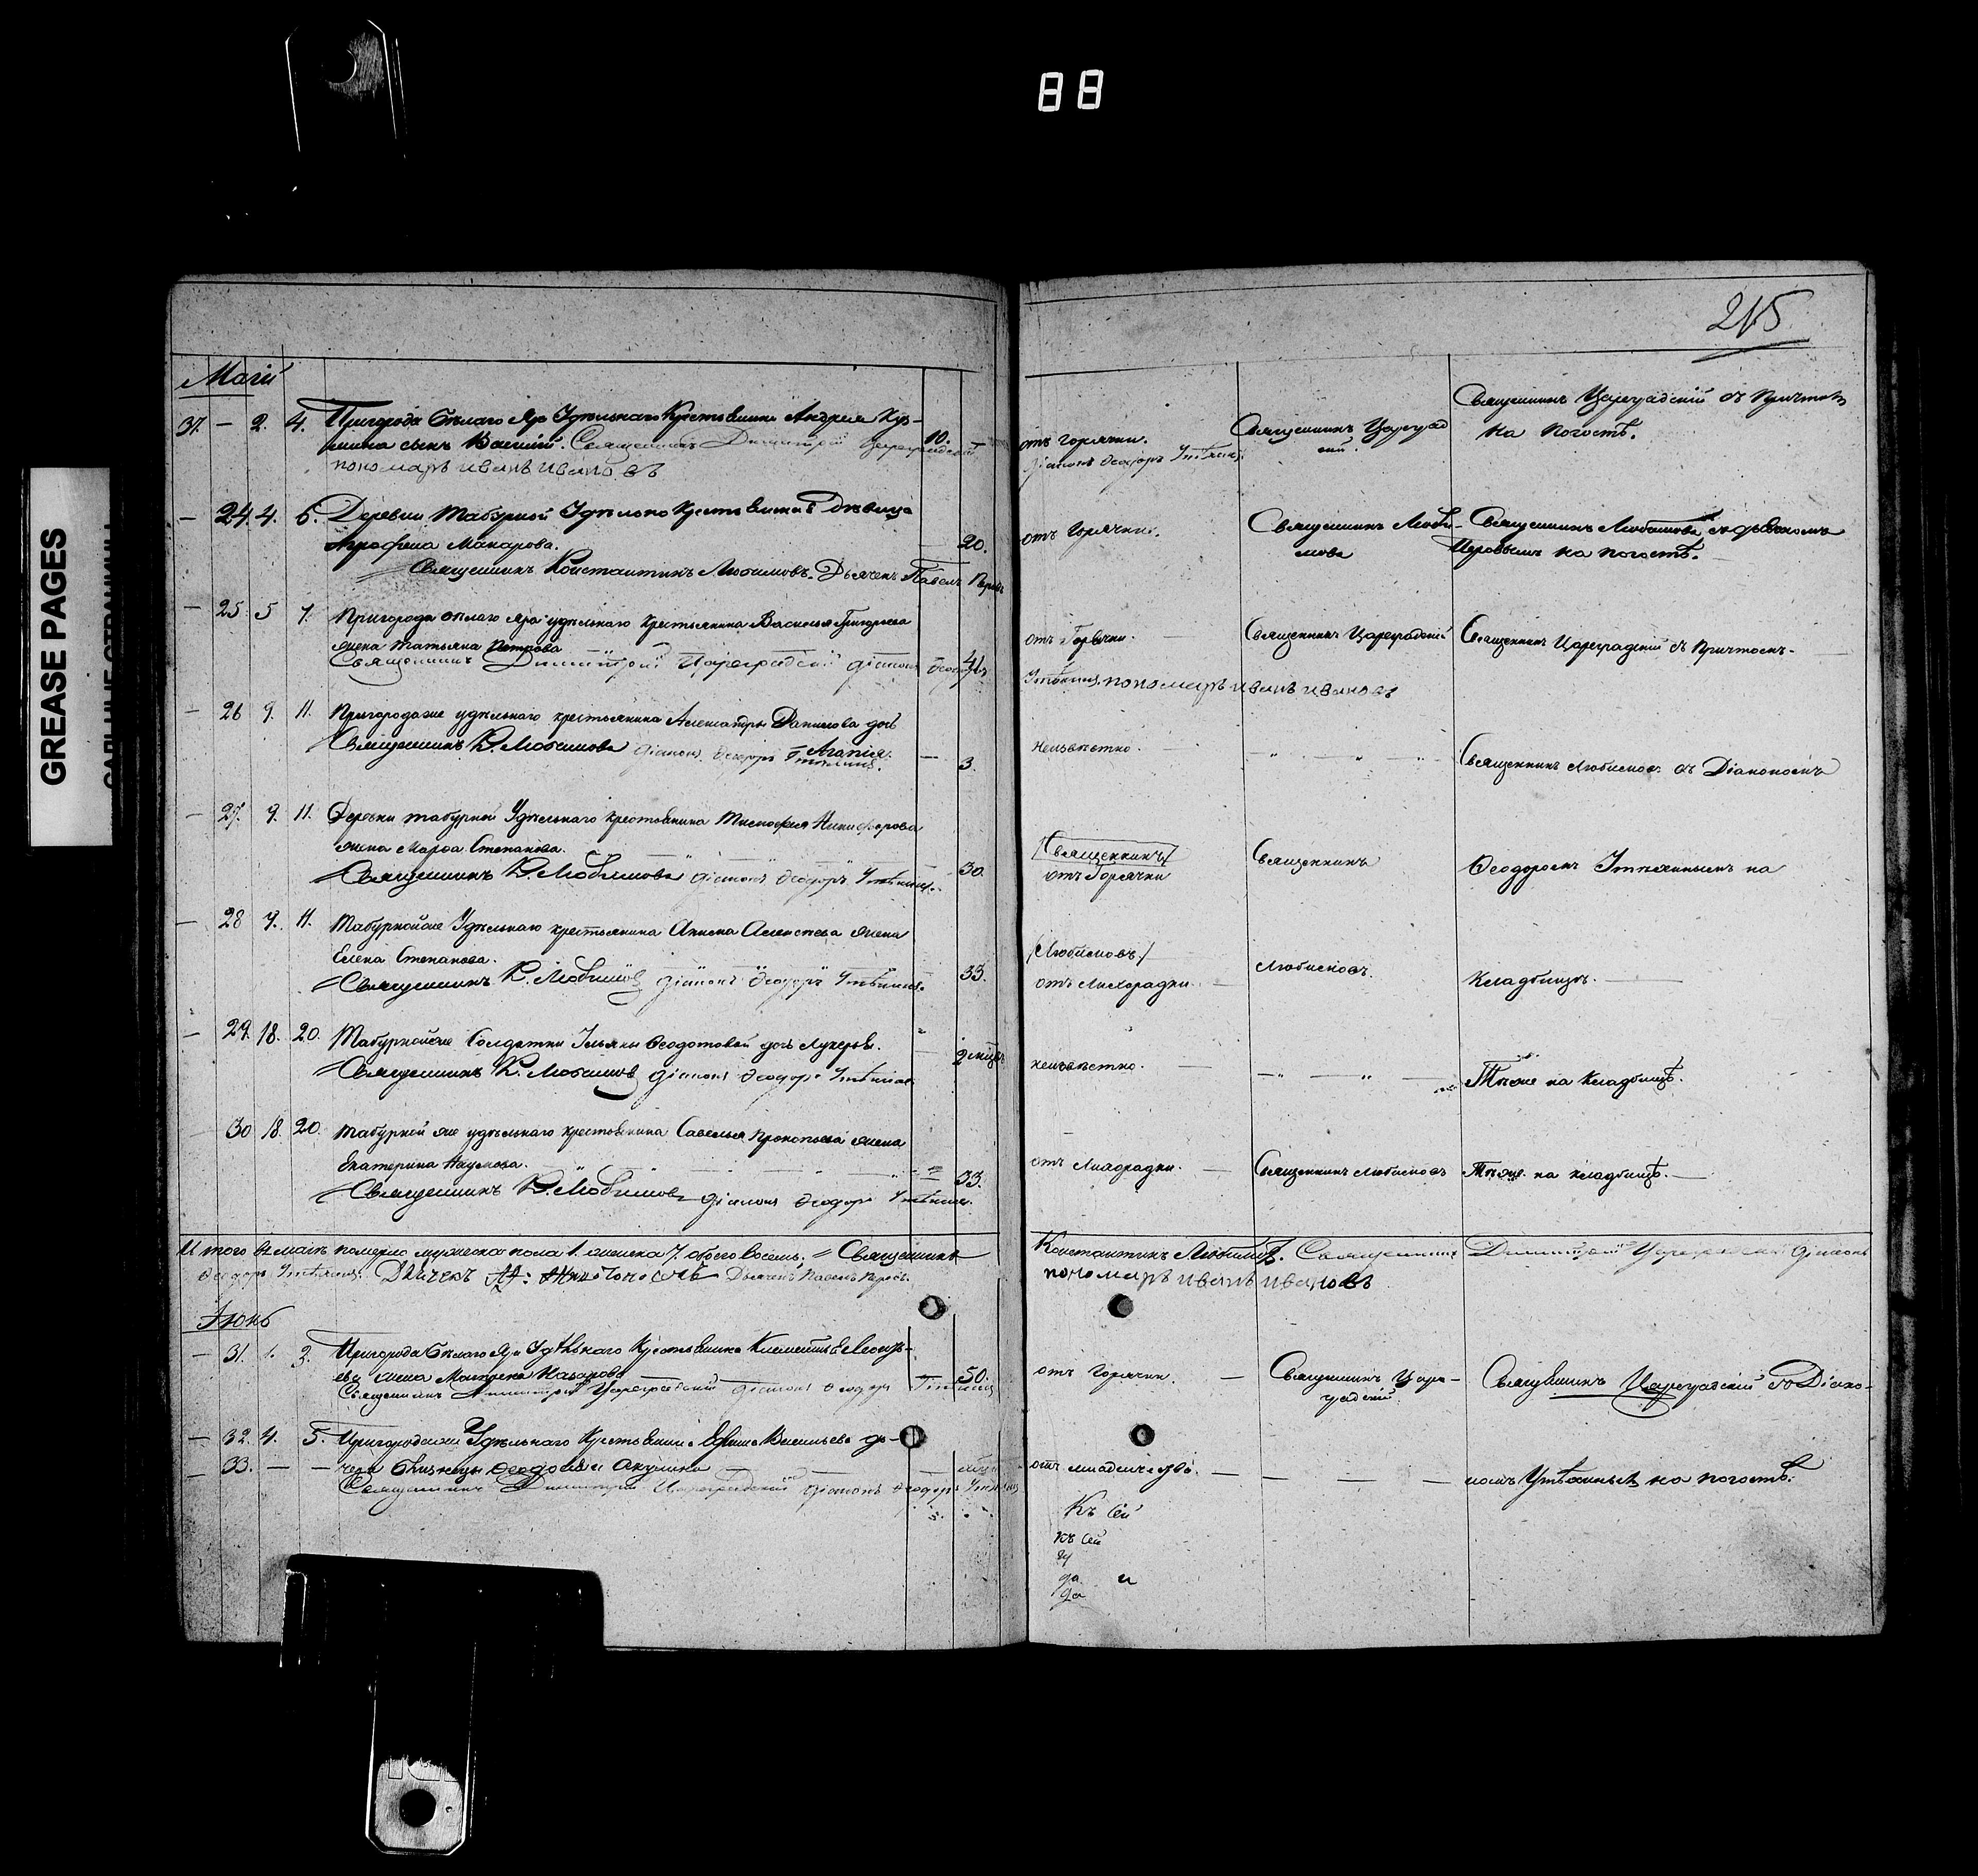 88
GREASE PAGES
215
Маій
37. — 2. 4. Пригорода Бѣлаго Яра Удѣльнаго Крестьянина Андрея Кузмина сынъ Василій. Священникъ Димитрій Цареградскій 10.
пономарь иванъ ивановъ
отъ горячки.
діаконъ Ѳеодоръ Утѣхинъ.
Священникъ Цареградскій.
Священникъ Цареградскій съ Причтомъ
на погостѣ.
— 24. 4. 6. Деревни Табурной Удѣльнаго Крестьянина дѣвица
Агрофена Макарова. 20.
Священникъ Константинъ Любимовъ. Дьячекъ Павелъ
отъ Горячки.
Священникъ Любимовъ
Священникъ Любимовъ
на погостѣ.
— 25 5 7. Пригорода Бѣлаго Яра удѣльнаго крестьянина Василья Григорьева
жена Татьяна Петрова 41.
Священникъ Димитрій Цареградскій діаконъ Ѳеодоръ
отъ Горячки.
Утѣхинъ. пономарь иванъ ивановъ
Священникъ Цареградскій
Священникъ Цареградскій съ Причтомъ.
— 26 9. 11. Пригородаже удѣльнаго крестьянина Александры Данилова дочь
Агапія. — 3.
Священникъ К. Любимовъ діаконъ Ѳеодоръ Утѣхинъ.
неизвѣстно.
Священникъ Любимовъ съ Діакономъ
— 27. 9. 11. Деревни табурной Удѣльнаго крестьянина Тимофея Никифорова
жена Марѳа Степанова. 30.
Священникъ К. Любимовъ діаконъ Ѳеодоръ Утѣхинъ.
/Священникъ/
отъ Горячки
Священникъ
Ѳеодоромъ Утѣхинымъ на
— 28 9. 11. Табурнойже Удѣльнаго крестьянина Алексѣева жена
Елена Степанова. 33.
Священникъ К. Любимовъ діаконъ Ѳеодоръ Утѣхинъ.
/Любимовъ/
отъ Лихорадки.
Любимовъ.
Кладбищѣ.
— 29. 18. 20. Табурнойже Солдатки Ульяны Ѳеодотовой дочь 2
Священникъ К. Любимовъ діаконъ Ѳеодоръ Утѣхинъ
неизвѣстно.
Тѣже на Кладбищѣ.
30 18. 20. Табурной же удѣльнаго крестьянина Савелья Прокопьева жена
Екатерина Наумова. 33.
Священникъ К. Любимовъ діаконъ Ѳеодоръ Утѣхинъ.
отъ Лихорадки.
Священникъ Любимовъ
Тѣже на кладбищѣ.
Итого въ маіѣ померло мужеска пола 1. женска 7. обоего восемь. Священникъ Константинъ Любимовъ. Священникъ Димитрій Цареградскій діаконъ
Ѳеодоръ Утѣхинъ. Дьячекъ Дьячекъ Павелъ пономарь иванъ ивановъ
Іюнь
— 31. 1. 3. Пригорода Бѣлаго Яра Удѣльнаго Крестьянина
жена Матрена Назарова 50.
Священникъ Димитрій Цареградскій діаконъ Ѳеодоръ Утѣхинъ
отъ Горячки.
Священникъ Цареградскій.
Священникъ Цареградскій съ Діако-
— 32. 4. 5. Пригородаже Удѣльнаго Крестьянина Ефима Васильева до-
— 33. — — чери близнецы Ѳеодосія и Акулина
Священникъ Димитрій Цареградскій діаконъ Ѳеодоръ Утѣхинъ
отъ младенчества.
номъ Утѣхинымъ на погостѣ.
Къ Сей
къ Сей
да и
да